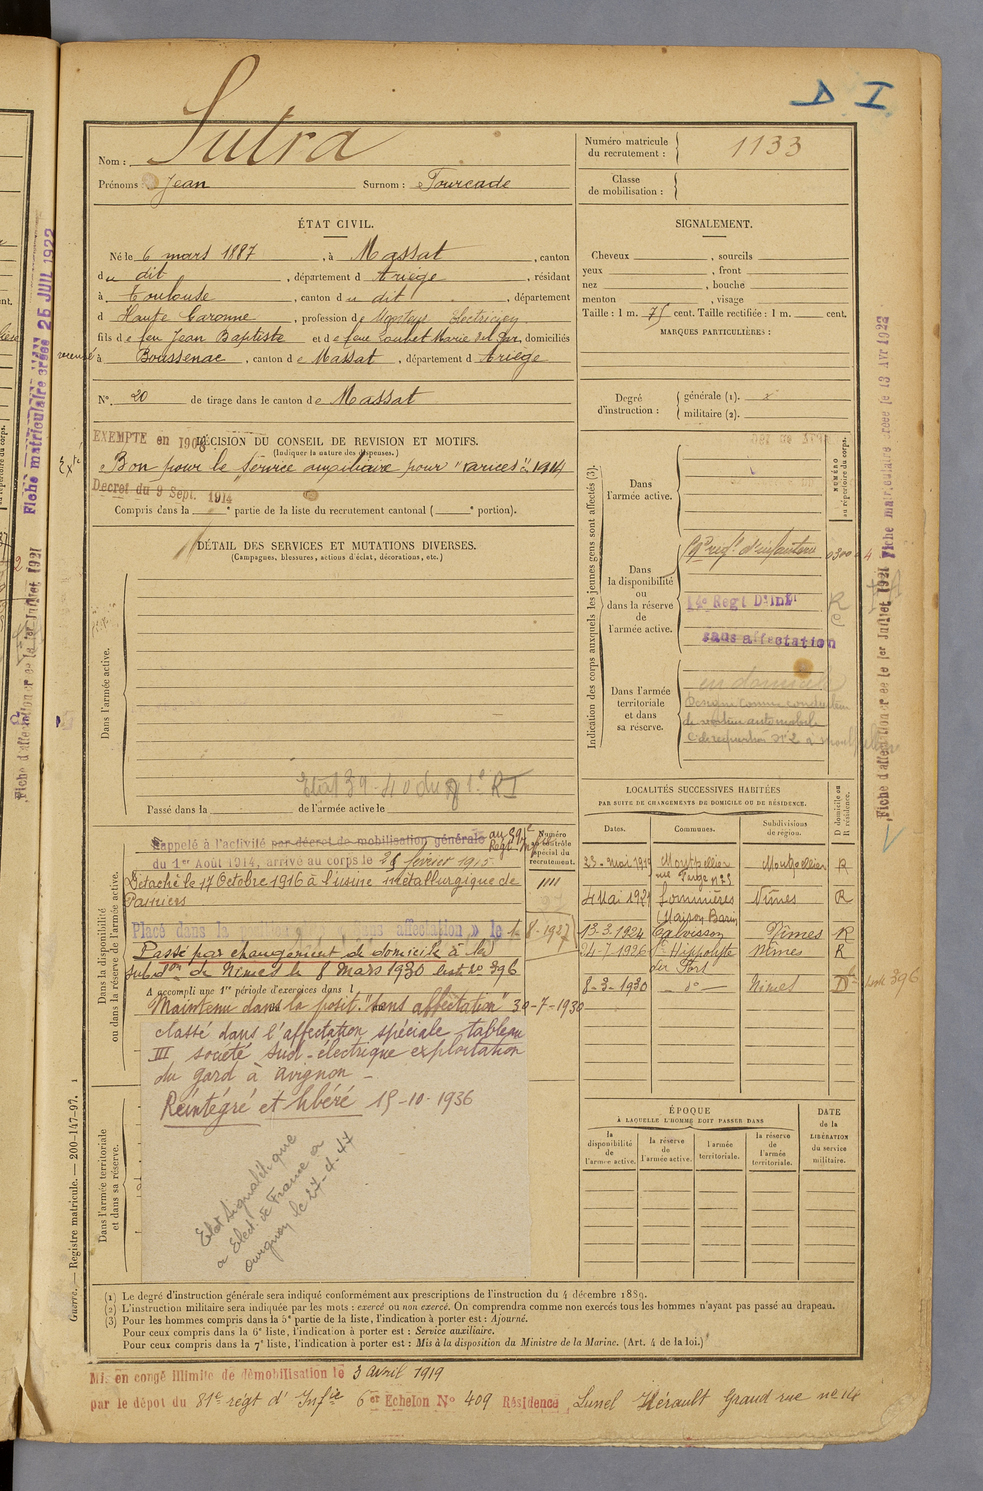 D I
Nom : Sutra
Prénoms : Jean Surnom : Fourcade
Numéro matricule du recrutement : 1133
Classe de mobilisation :
ÉTAT CIVIL.
Né le 6 mars 1887, à Massat, canton
du dit, département d Ariège, résidant
à Toulouse, canton du dit, département
d Haute Garonne, profession de Monteur électricien
fils de feu Jean Baptiste et de feue Loubet Marie, domiciliés
à Boussenac, canton de Massat, département d Ariège
N° 20 de tirage dans le canton de Massat
SIGNALEMENT.
Cheveux , sourcils
yeux , front
nez , bouche
menton , visage
Taille : 1 m. 75 cent. Taille rectifiée : 1 m. cent.
MARQUES PARTICULIÈRES :
Degré d'instruction : générale (1). militaire (2).
EXEMPTE en 1908
DÉCISION DU CONSEIL DE REVISION ET MOTIFS.
(Indiquer la nature des dispenses.)
Bon pour le service auxiliaire pour "varices" 1914
Décret du 9 Sept. 1914
Compris dans la e partie de la liste du recrutement cantonal ( e portion).
DÉTAIL DES SERVICES ET MUTATIONS DIVERSES.
(Campagnes, blessures, actions d'éclat, décorations, etc.)
Dans l'armée active.
Etat 39-40 du 81e RI
Passé dans la de l'armée active le
Dans la disponibilité ou dans la réserve de l'armée active.
Rappelé à l'activité par décret de mobilisation générale
du 1er Août 1914, arrivé au corps le 28 février 1915
Numéro au contrôle spécial du recrutement.
Détaché le 17 Octobre 1916 à l'usine métallurgique de
Pamiers
Placé dans la position « sans affectation » le 8-1927
Passé par changement de domicile à la
Subdon de Nîmes le 8 mars 1930 liste 396
A accompli une 1re période d'exercices dans l
Maintenu dans la posit. "sans affectation" 30-7-1930
classé dans l'affectation spéciale tableau
III société sud-électrique exploitation
du gard à avignon -
Réintégré et libéré 15-10-1936
Etat Signalétique
a Elect. de France a
avignon le 27-4-47
Dans l'armée territoriale et dans sa réserve.
Indication des corps auxquels les jeunes gens sont affectés (3).
NUMÉRO au répertoire du corps.
Dans l'armée active.
Dans la disponibilité ou dans la réserve de l'armée active.
regt d'infanterie
14e Regt D'Inf
sans affectation
Dans l'armée territoriale et dans sa réserve.
comme conducteur
de voiture automobile
LOCALITÉS SUCCESSIVES HABITÉES
PAR SUITE DE CHANGEMENTS DE DOMICILE OU DE RÉSIDENCE.
Dates. Communes. Subdivisions de région. D domicile ou R résidence.
23-mai 1919 Montpellier Montpellier R
4 Mai 1921 Sommières Nîmes R
13.3.1924 Calvisson Nîmes R
24-7-1926 St Hippolyte du Fort Nîmes R
8-3-1930 -do- Nîmes D liste 396
ÉPOQUE
À LAQUELLE L'HOMME DOIT PASSER DANS
DATE de la LIBÉRATION du service militaire.
la disponibilité de l'armée active.
la réserve de l'armée active.
l'armée territoriale.
la réserve de l'armée territoriale.
(1) Le degré d'instruction générale sera indiqué conformément aux prescriptions de l'instruction du 4 décembre 1889.
(2) L'instruction militaire sera indiquée par les mots : exercé ou non exercé. On comprendra comme non exercés tous les hommes n'ayant pas passé au drapeau.
(3) Pour les hommes compris dans la 5e partie de la liste, l'indication à porter est : Ajourné.
Pour ceux compris dans la 6e liste, l'indication à porter est : Service auxiliaire.
Pour ceux compris dans la 7e liste, l'indication à porter est : Mis à la disposition du Ministre de la Marine. (Art. 4 de la loi.)
Mis en congé illimité de démobilisation le 3 avril 1919
par le dépot du 81e régt d'Infie 6er Echelon No 409 Résidence Lunel Hérault Grand rue no 14
Guerre. — Registre matricule. — 200-147-97.
Fiche matriculaire créée 25 JUIL 1922
Fiche d'affectation créée le 1er Juillet 1921
Fiche matriculaire créée le 13 Avr 1922
Fiche d'affectation créée le 1er Juillet 1921